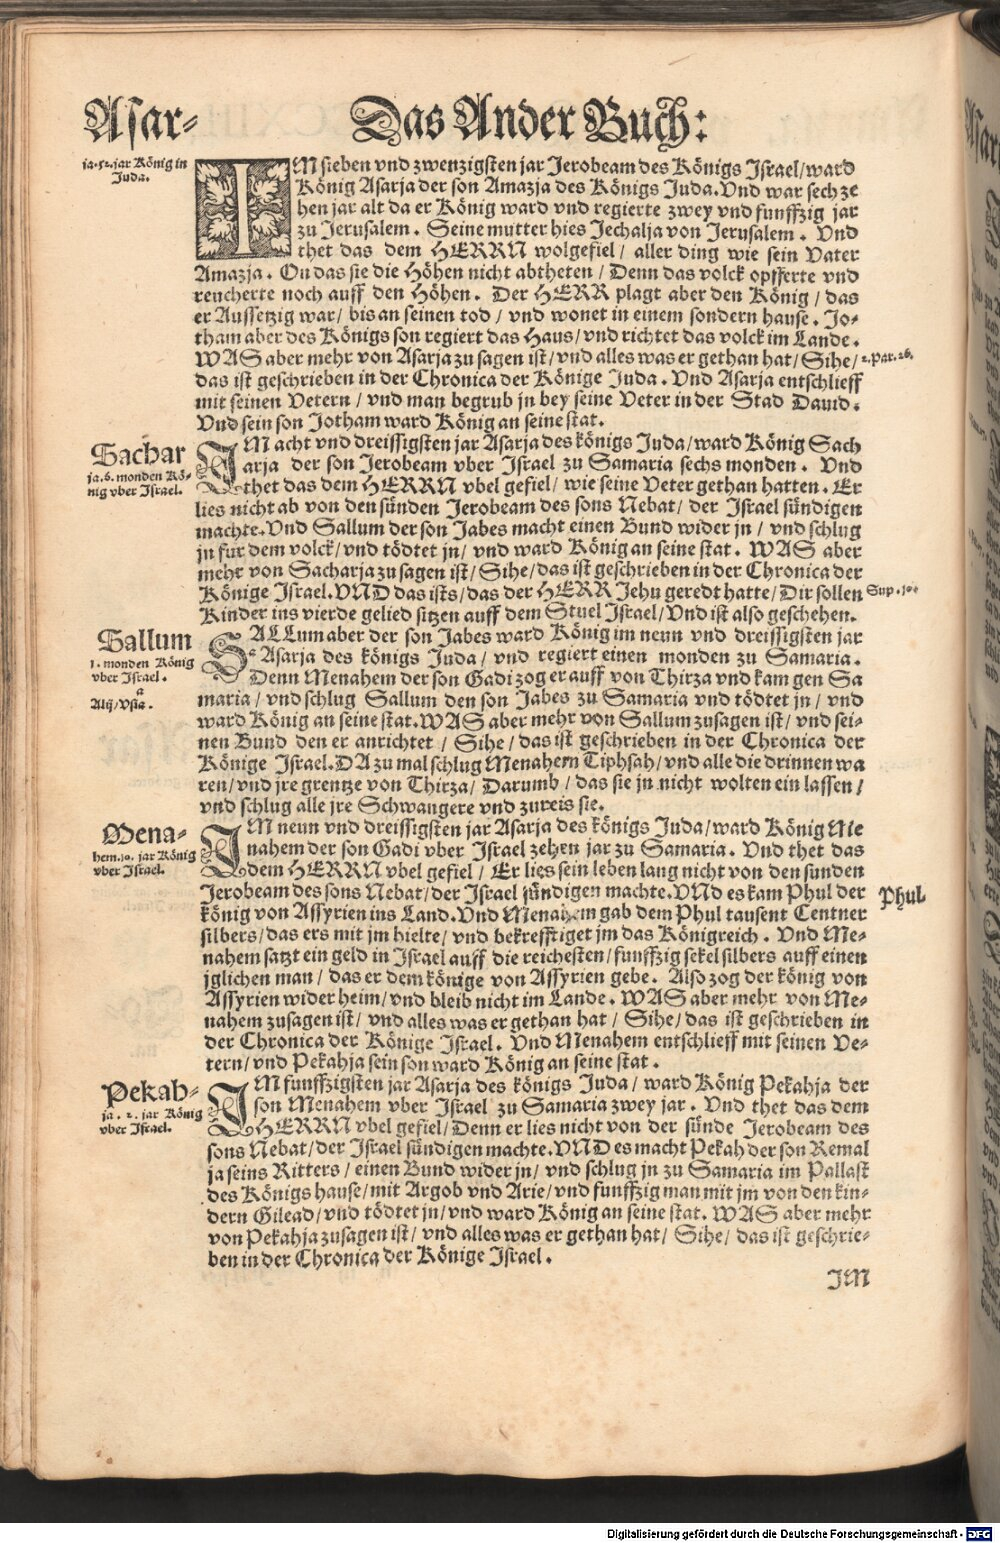 Asar-
Das Ander Buch:
ja. 52. jar König in
Juda.
IM sieben vnd zwenzigsten jar Jerobeam des Königs Israel/ward
König Asarja der son Amazja des Königs Juda. Vnd war sech ze
hen jar alt da er König ward vnd regierte zwey vnd funffzig jar
zu Jerusalem. Seine mutter hies Jechalja von Jerusalem. Vnd
thet das dem HERRN wolgefiel/ aller ding wie sein Vater
Amazja. On das sie die Höhen nicht abtheten/ Denn das volck opfferte vnd
reucherte noch auff den Höhen. Der HERR plagt aber den König/ das
er Aussetzig war/ bis an seinen tod/ vnd wonet in einem sondern hause. Jo-
tham aber des Königs son regiert das Haus/ vnd richtet das volck im Lande.
WAS aber mehr von Asarja zu sagen ist/ vnd alles was er gethan hat/ Sihe/
2. Par. 26.
das ist geschrieben in der Chronica der Könige Juda. Vnd Asarja entschlieff
mit seinen Vetern/ vnd man begrub jn bey seine Veter in der Stad Dauid.
Vnd sein son Jotham ward König an seine stat.
Sachar
ja. 6. monden Kö-
nig vber Israel.
IM acht vnd dreissigsten jar Asarja des königs Juda/ward König Sach
arja der son Jerobeam vber Israel zu Samaria sechs monden. Vnd
thet das dem HERRN vbel gefiel/ wie seine Veter gethan hatten. Er
lies nicht ab von den sünden Jerobeam des sons Nebat/ der Israel sündigen
machte. Vnd Sallum der son Jabes macht einen Bund wider jn/ vnd schlug
jn fur dem volck/ vnd tödtet jn/ vnd ward König an seine stat. WAS aber
mehr von Sacharja zu sagen ist/ Sihe/ das ist geschrieben in der Chronica der
Könige Israel. VND das ists/ das der HERR Jehu geredt hatte/ Dir sollen
Sup. 10.
Kinder ins vierde gelied sitzen auff dem Stuel Israel/ Vnd ist also geschehen.
Sallum
1. monden König
vber Israel.
a
Alij/ Vsia.
SALLum aber der son Jabes ward König im neun vnd dreissigsten jar
a Asarja des königs Juda/ vnd regiert einen monden zu Samaria.
Denn Menahem der son Gadi zog er auff von Thirza vnd kam gen Sa
maria/ vnd schlug Sallum den son Jabes zu Samaria vnd tödtet jn/ vnd
ward König an seine stat. WAS aber mehr von Sallum zusagen ist/ vnd sei-
nen Bund den er anrichtet/ Sihe/ das ist geschrieben in der Chronica der
Könige Israel. DA zu mal schlug Menahem Tiphsah/ vnd alle die drinnen wa
ren/ vnd jre grentze von Thirza/ Darumb/ das sie jn nicht wolten ein lassen/
vnd schlug alle jre Schwangere vnd zureis sie.
Mena-
hem. 10. jar König
vber Israel.
IM neun vnd dreissigsten jar Asarja des königs Juda/ ward König Me
nahem der son Gadi vber Israel zehen jar zu Samaria. Vnd thet das
dem HERRN vbel gefiel/ Er lies sein leben lang nicht von den sunden
Jerobeam des sons Nebat/ der Israel sündigen machte. VNd es kam Phul der
Phul.
könig von Assyrien ins Land. Vnd Menahem gab dem Phul tausent Centner
silbers/ das ers mit jm hielte/ vnd bekrefftiget jm das Königreich. Vnd Me-
nahem satzt ein geld in Israel auff die reichesten/ funffzig sekel silbers auff einen
jglichen man/ das er dem könige von Assyrien gebe. Also zog der könig von
Assyrien wider heim/ vnd bleib nicht im Lande. WAS aber mehr von Me-
nahem zusagen ist/ vnd alles was er gethan hat/ Sihe/ das ist geschrieben in
der Chronica der Könige Israel. Vnd Menahem entschlieff mit seinen Ve-
tern/ vnd Pekahja sein son ward König an seine stat.
Pekah-
ja. 2. jar König
vber Israel.
IM funffzigsten jar Asarja des königs Juda/ ward König Pekahja der
son Menahem vber Israel zu Samaria zwey jar. Vnd thet das dem
HERRN vbel gefiel/ Denn er lies nicht von der sünde Jerobeam des
sons Nebat/ der Israel sündigen machte. VND es macht Pekah der son Remal
ja seins Ritters/ einen Bund wider jn/ vnd schlug jn zu Samaria im Pallast
des Königs hause/ mit Argob vnd Arie/ vnd funffzig man mit jm von den kin-
dern Gilead/ vnd tödtet jn/ vnd ward König an seine stat. WAS aber mehr
von Pekahja zusagen ist/ vnd alles was er gethan hat/ Sihe/ das ist geschrie-
ben in der Chronica der Könige Israel.
IM
Digitalisierung gefördert durch die Deutsche Forschungsgemeinschaft - DFG